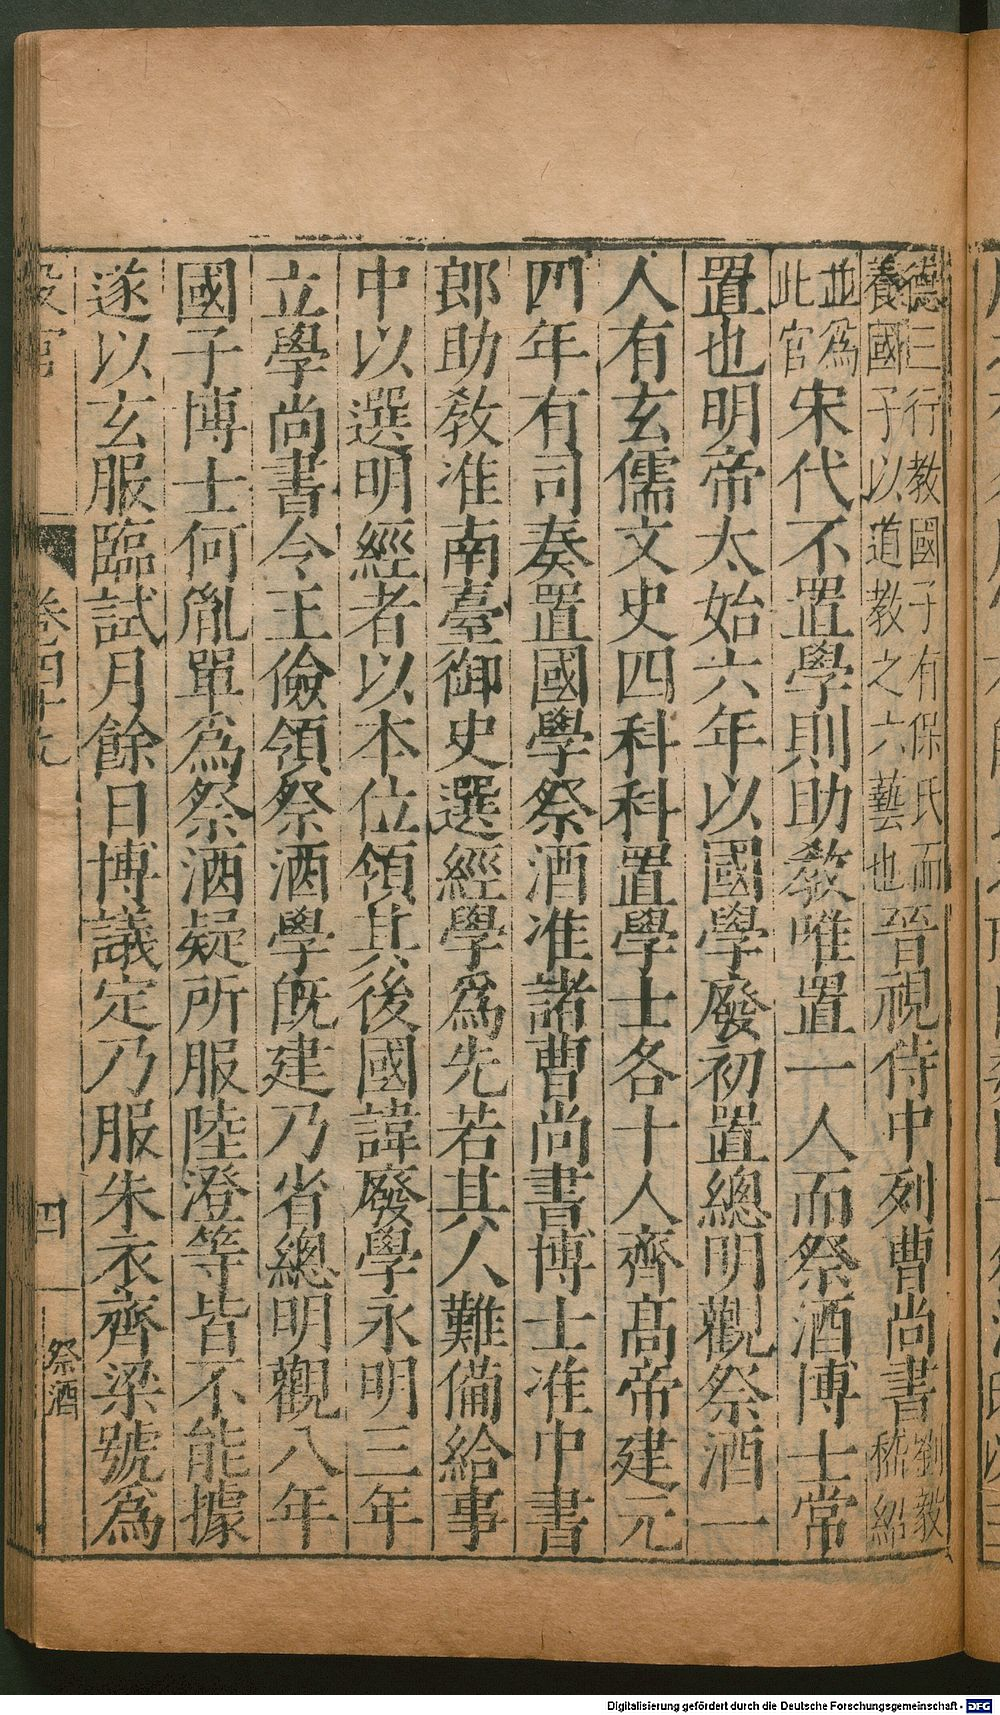 德三行教國子有保氏而
養國子以道教之六藝也
晉視侍中列曹尚書
劉毅
嵇紹
並爲
此官
宋代不置學則助敎唯置一人而祭酒博士常
置也明帝太始六年以國學廢初置總明觀祭酒一
人有玄儒文史四科科置學士各十人齊髙帝建元
四年有司奏置國學祭酒准諸曹尚書博士准中書
郎助敎准南臺御史選經學爲先若其人難備給事
中以選明經者以本位領其後國諱廢學永明三年
立學尚書令王儉領祭酒學旣建乃省總明觀八年
國子博士何胤單爲祭酒疑所服陸澄等皆不能據
遂以玄服臨試月餘日博議定乃服朱衣齊梁號爲
卷四十
四
祭酒
Digitalisierung gefördert durch die Deutsche Forschungsgemeinschaft - DFG